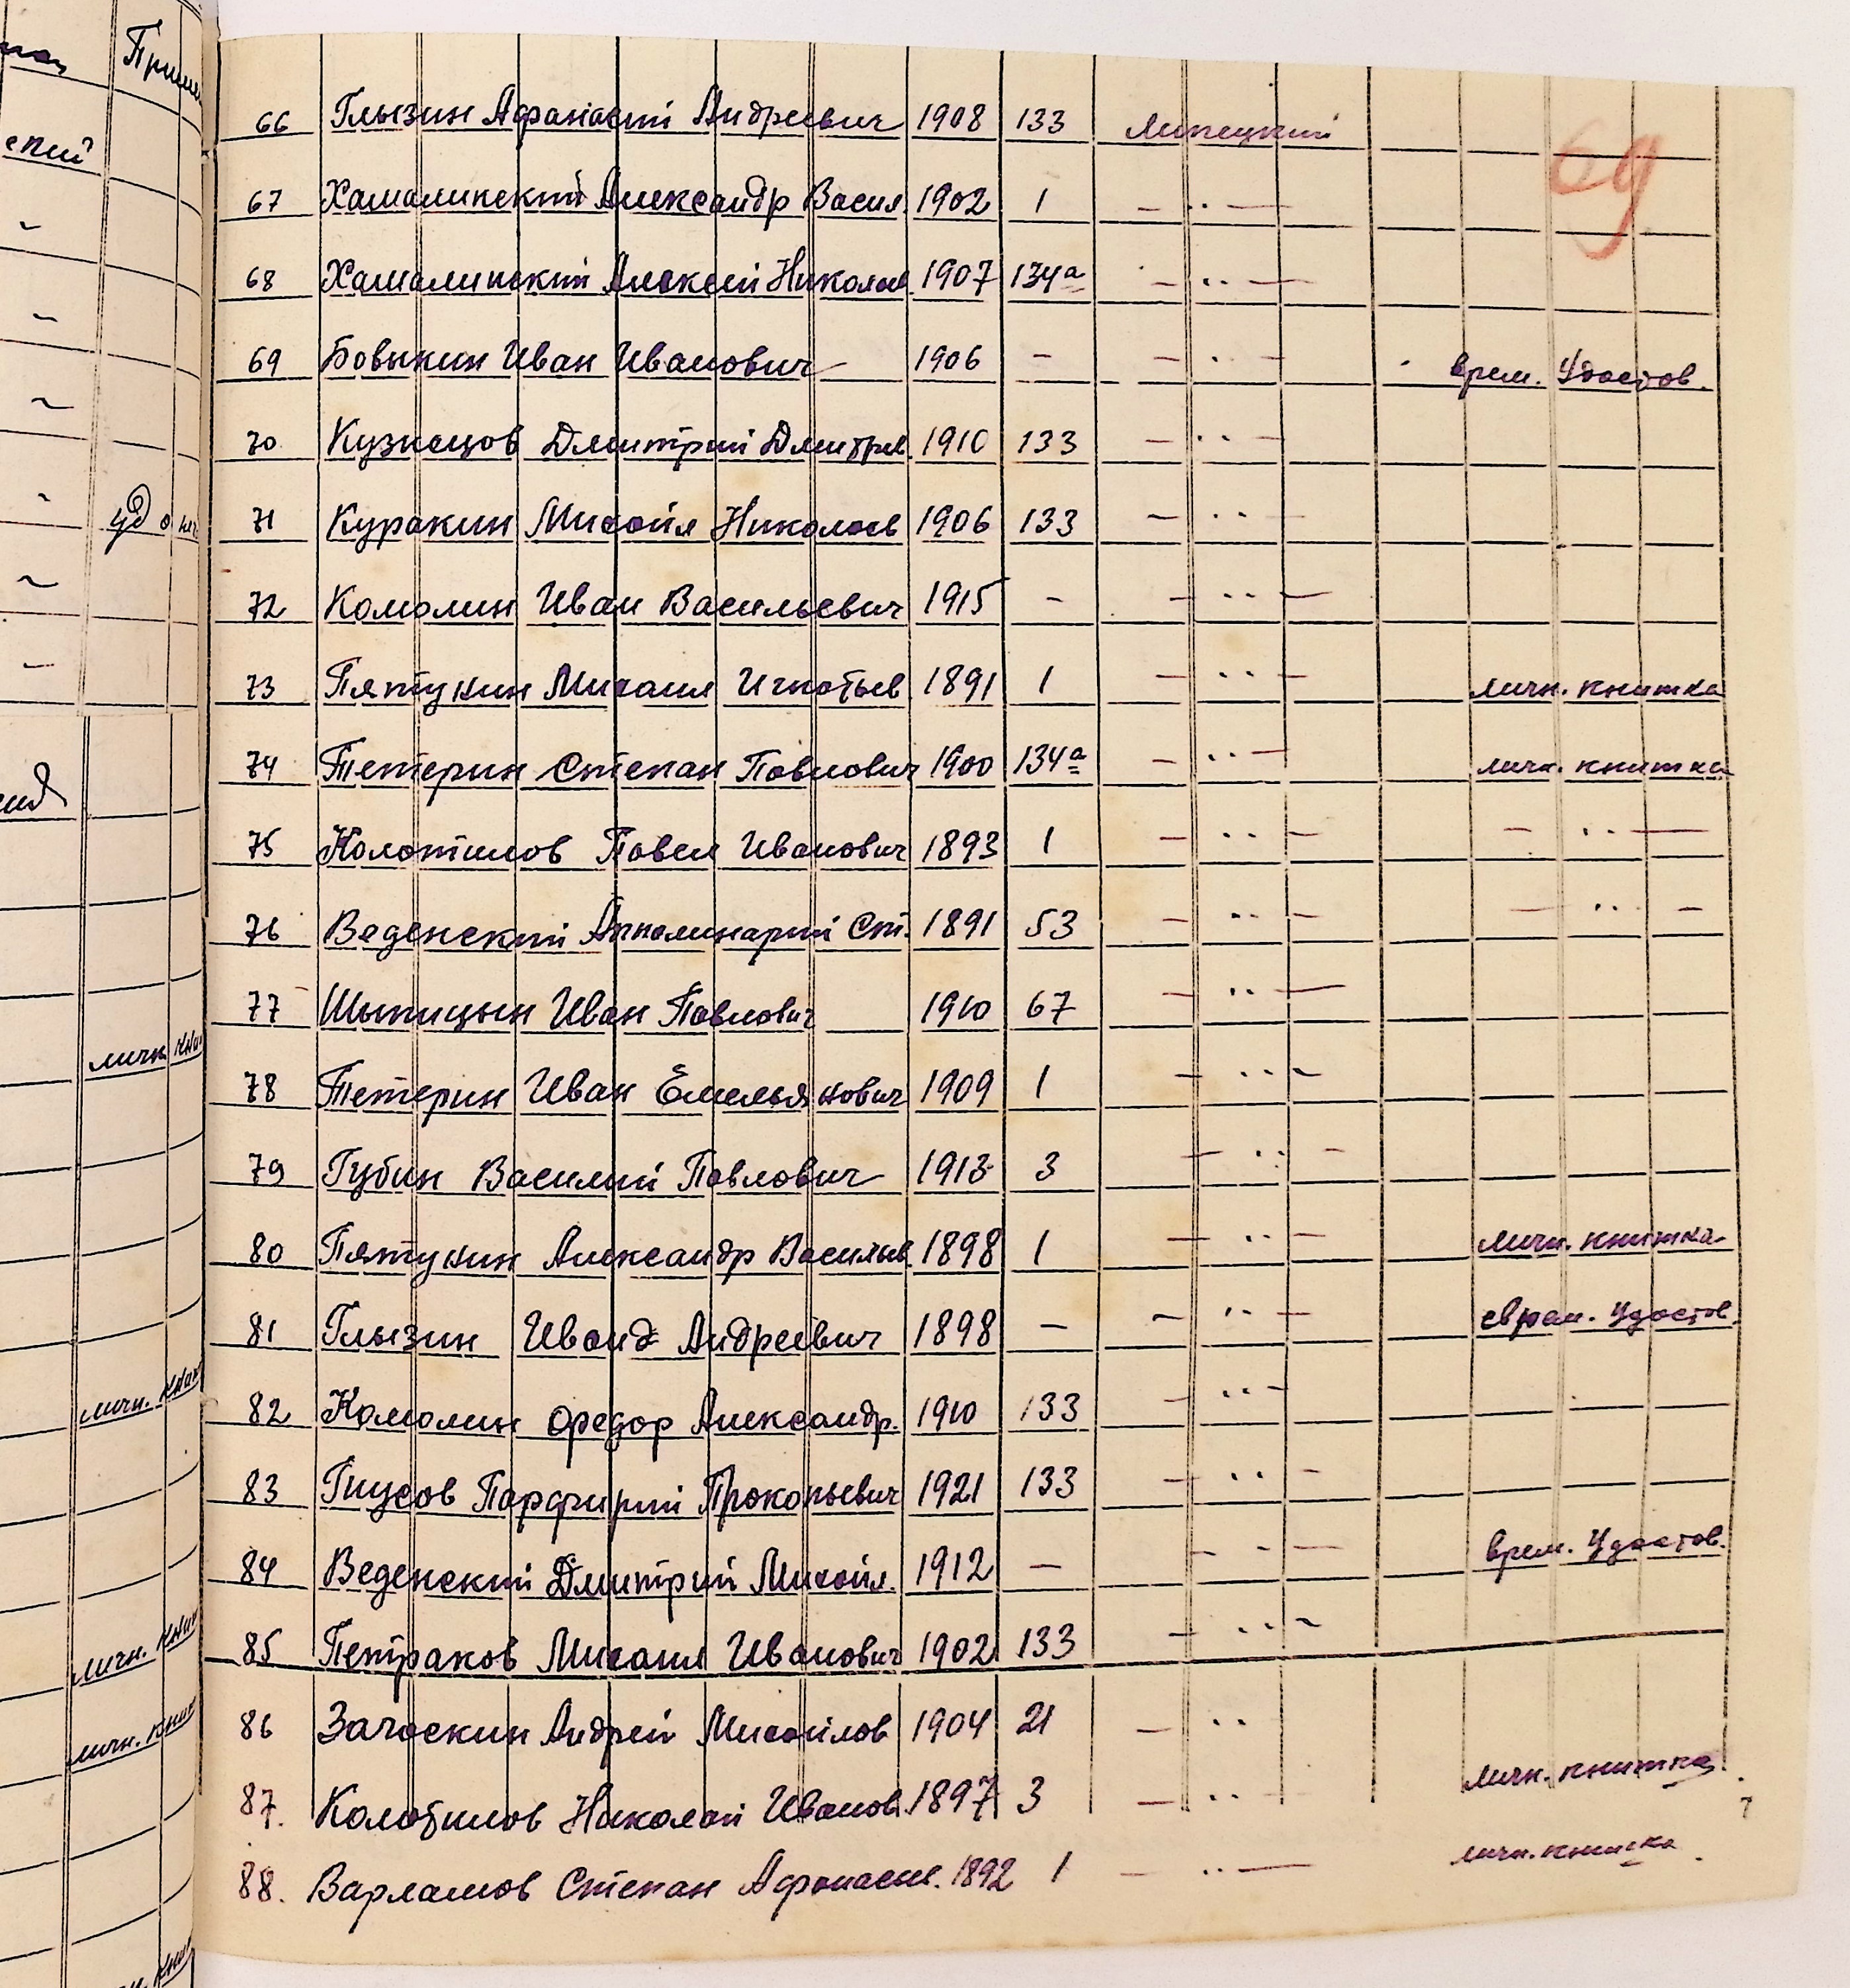 Прим
ский
уд
личн. кни
личн. кни
личн. кни
личн. кни
69
66 Глызин Афанасий Андреевич 1908 133 Липецкий
67 Хамалинский Александр Васил. 1902 1 — ·· —
68 Хамалинский Алексей Николаев. 1907 134а — ·· —
69 Бовыкин Иван Иванович 1906 — — · — врем. Удостов.
70 Кузнецов Дмитрий Дмитрев. 1910 133 — ·· —
71 Куракин Михайл Николаев 1906 133 — ·· —
72 Комолин Иван Васильевич 1915 — — ·· —
73 Пятукин Михаил Игнатьев 1891 1 — ·· — личн. книжка
74 Тетерин Степан Павлович 1900 134а — ·· — личн. книжка
75 Колотилов Павел Иванович 1893 1 — ·· — — ·· —
76 Веденский Апполинарий Ст. 1891 53 — ·· — — ·· —
77 Шыпицын Иван Павлович 1910 67 — ·· —
78 Тетерин Иван Емельянович 1909 1 — ·· —
79 Губин Василий Павлович 1913 3 — ·· —
80 Пятукин Александр Васильев. 1898 1 — ·· — личн. книжка
81 Глызин Иван Андреевич 1898 — — ·· — врем. Удостов.
82 Комолин Федор Александр. 1910 133 — ·· —
83 Гнусов Парфирий Прокопьевич 1921 133 — ·· —
84 Веденский Дмитрий Михайл. 1912 — — · — врем. Удостов.
85 Петраков Михаил Иванович 1902 133 — ·· —
86 Загоскин Андрей Михайлов 1904 21 — ··
87. Колотилов Николай Иванов. 1897 3 — ·· — личн. книжка
88. Варламов Степан Афонасив. 1892 1 — ·· — личн. книжка